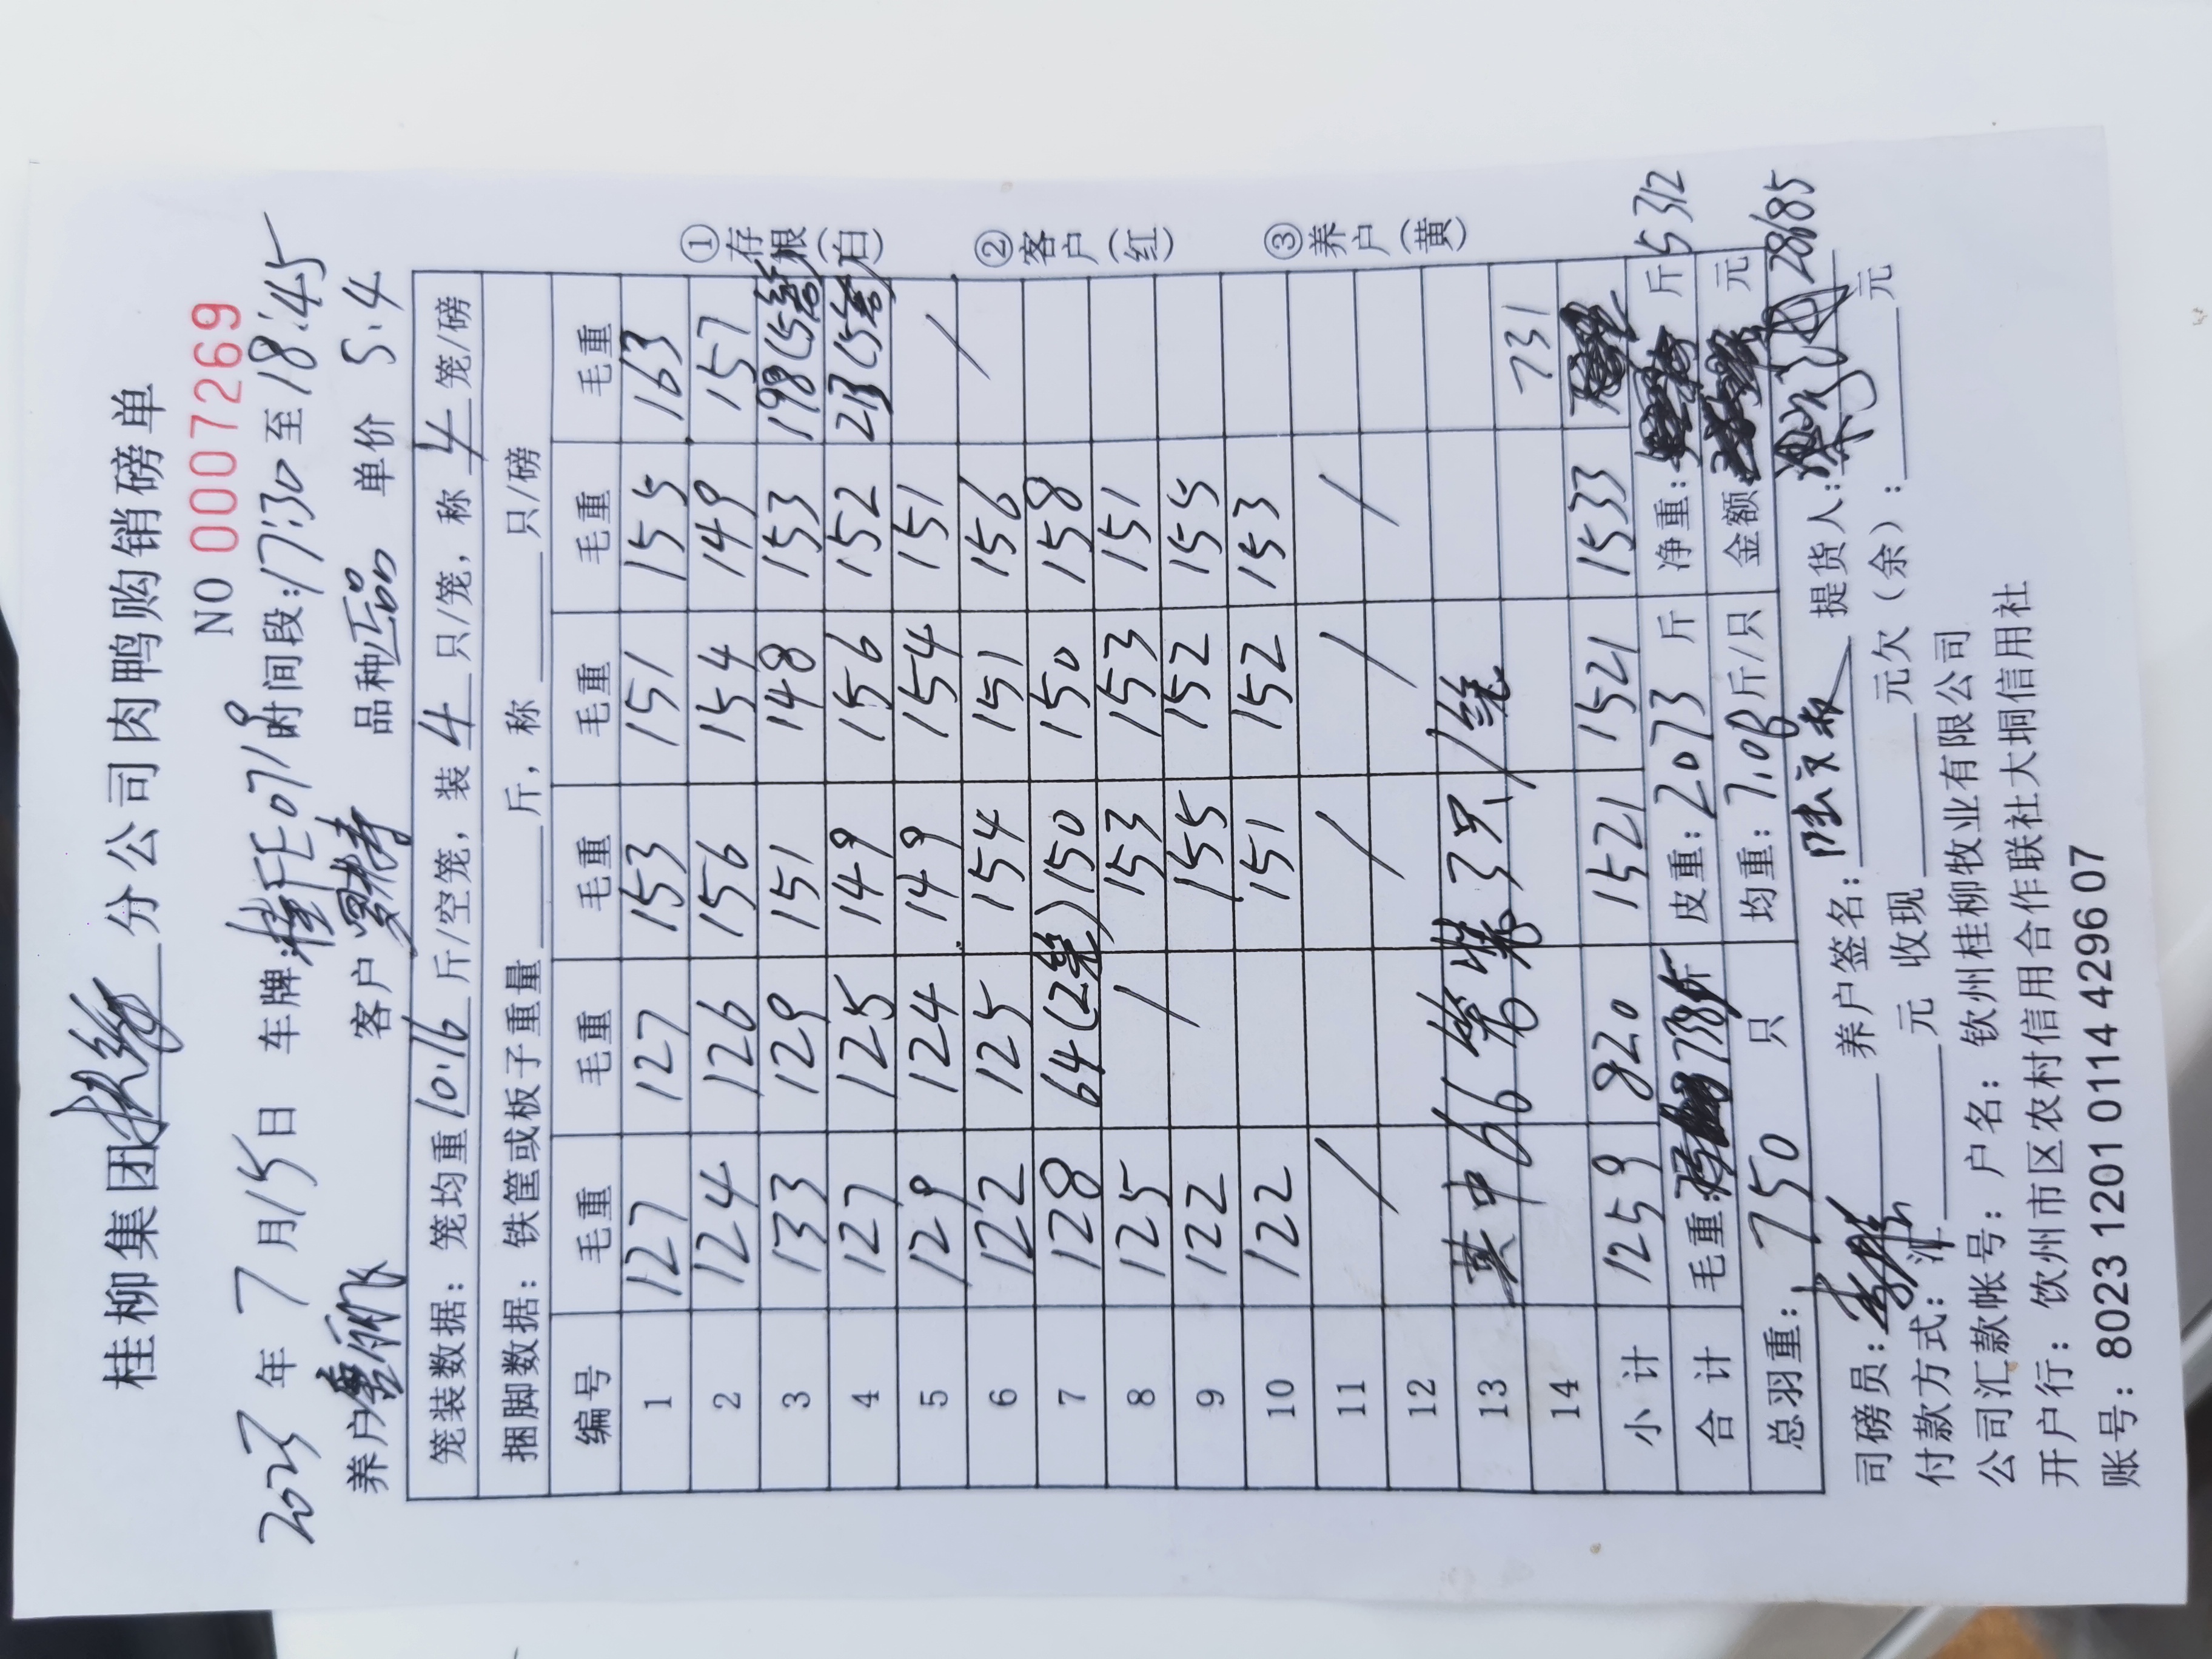 桂柳集团 分公司肉鸭购销磅单
NO 0007269
2023 年 7 月 15 日 车牌: 桂FE0719 时间段: 17:30 至 18:45
养户 客户 品种 正品 单价 5.4
笼装数据: 笼均重 10.16 斤/空笼, 装 4 只/笼, 称 4 笼/磅
捆脚数据: 铁筐或板子重量 斤, 称 只/磅
编号 毛重 毛重 毛重 毛重 毛重 毛重
1 127 127 153 151 155 163
2 124 126 156 154 149 157
3 133 129 151 148 153 198 (5笼)
4 127 125 149 156 152 213 (5笼)
5 129 124 149 154 151 /
6 122 125 154 151 156
7 128 64 (2笼) 150 150 158
8 125 / 153 153 151
9 122 155 152 155
10 122 151 152 153
11 / / / /
12
13 其中 66 笼装 3只/笼 731
14
小计 1259 820 1521 1521 1533
合计 毛重: 7385 皮重: 2073 斤 净重: 斤 5312
总羽重: 750 只 均重: 7.08 斤/只 金额 元 28685
司磅员: 养户签名: 提货人:
付款方式: 元 收现 元欠 (余): 元
公司汇款帐号: 户名: 钦州桂柳牧业有限公司
开户行: 钦州市区农村信用合作联社大垌信用社
账号: 8023 1201 0114 4296 07
①存根(白)
②客户(红)
③养户(黄)